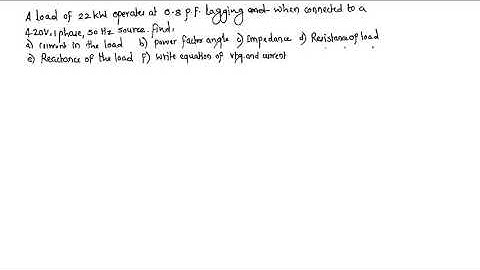 A load of 22 kW operates at 0.8 p.f. lagging when connected to a
420V, 1 phase, 50 Hz source. find:
a) current in the load b) power factor angle c) Impedance d) Resistance of load
e) Reactance of the load f) Write equation of vtg. and current